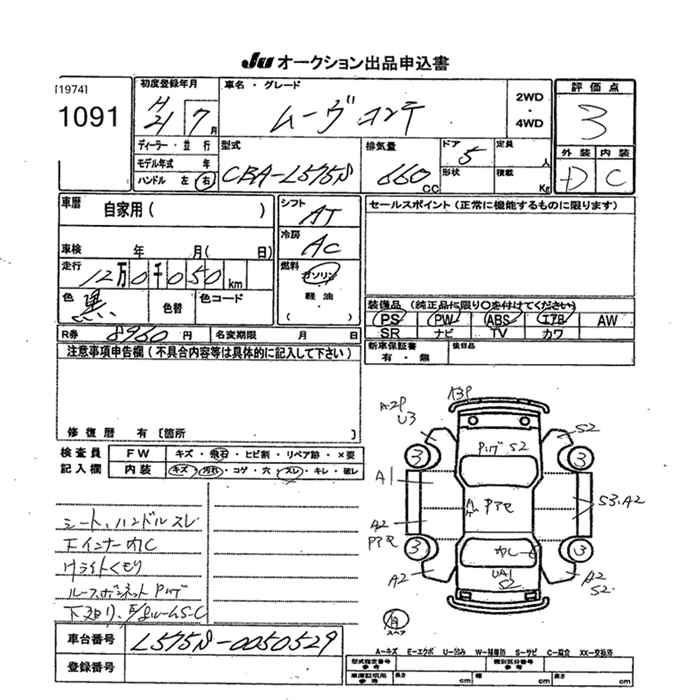 Ju オークション出品申込書
[1974]
1091
初度登録年月
H 21 7月
車名・グレード
ムーヴコンテ
2WD・4WD
評価点
3
ディーラー・並行
モデル年式 年
ハンドル 左 右
型式
CBA-L575S
排気量
660 CC
ドア
5
形状
定員 人
積載 Kg
外装 内装
D C
車歴 自家用( )
シフト
AT
セールスポイント(正常に機能するものに限ります)
車検 年 月( 日)
冷房
AC
走行
12万0千050km
燃料
ガソリン
軽油
( )
色
黒
色替
色コード
装備品(純正品に限り〇を付けてください)
PS PW ABS エアB AW
SR ナビ TV カワ
R券 8960円 名変期限 月 日
新車保証書
有・無
後日品
注意事項申告欄(不具合内容等は具体的に記入して下さい)
修復歴 有〔箇所 〕
検査員
記入欄
FW キズ・飛石・ヒビ割・リペア跡・X要
内装 キズ・汚れ・コゲ・穴・スレ・キレ・破レ
A3P
A2P
U3
S2
Pハゲ S2
3 3
A1
A
Pアセ
S3.A2
A2
Pアセ
3 3
UA1
S2
A2
A2
S2
シート、ハンドルスレ
Fインナー内C
Hライトくもり
ルーフボンネットPハゲ
下廻り、
S-C
スペア
車台番号 L575S-0050529
登録番号
A―キズ E―エクボ U―凹み W―補修跡 S―サビ C―腐食 XX―交換済
型式指定番号
参考
類別区分番号
参考
車庫証明用
参考
長さ cm 幅 cm 高さ cm